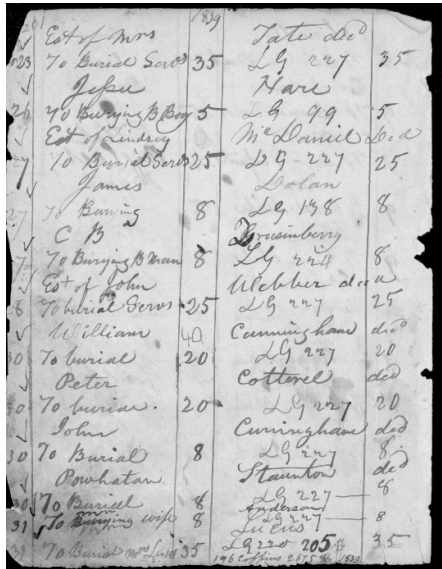 1839
Est of Mrs Tate decd
23 To Burial Servs 35 LG 227 35
Jesse Hare
26 To Burying B Boy 5 LG 99 5
Est of Lindsey McDaniel Decd
27 To Burial Servs 25 LG 227 25
James Dolan
27 To Burying 8 LG 138 8
C B Brusinberry
To Burying B Man 8 LG 224 8
Est of John Webber decd
28 To burial Servs 25 LG 227 25
William 40 Cunningham decd
30 To burial 20 LG 227 20
Peter Cotterel decd
30 To burial 20 LG 227 20
John Cunningham decd
30 To Burial 8 LG 227 8
Powhatan Staunton decd
30 To Buriel 8 LG 227 8
Anderson
31 To Burying wife 8 LG 227 8
31 To Burial Mrs 35 LG 220 205 35
196 Coffins 1839